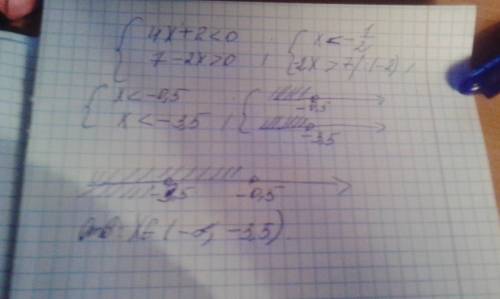 4x+2<0
7-2x>0 ;
x<-1/2
-2x>-7 |(:-2) ;
x<-0,5
x<-3,5 ;
-0,5
-3,5
-3,5 -0,5
Отв: x∈(-∞, -3,5)